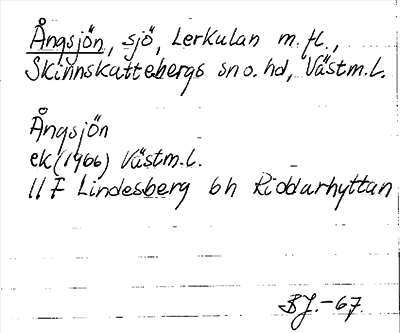 Ångsjön, sjö, Lerkulan m.fl.,
Skinnskattebergs sn o. hd, Västm.l.
Ångsjön
ek (1966) Västm.l.
11 F Lindesberg bh Riddarhyttan
BJ.-67.